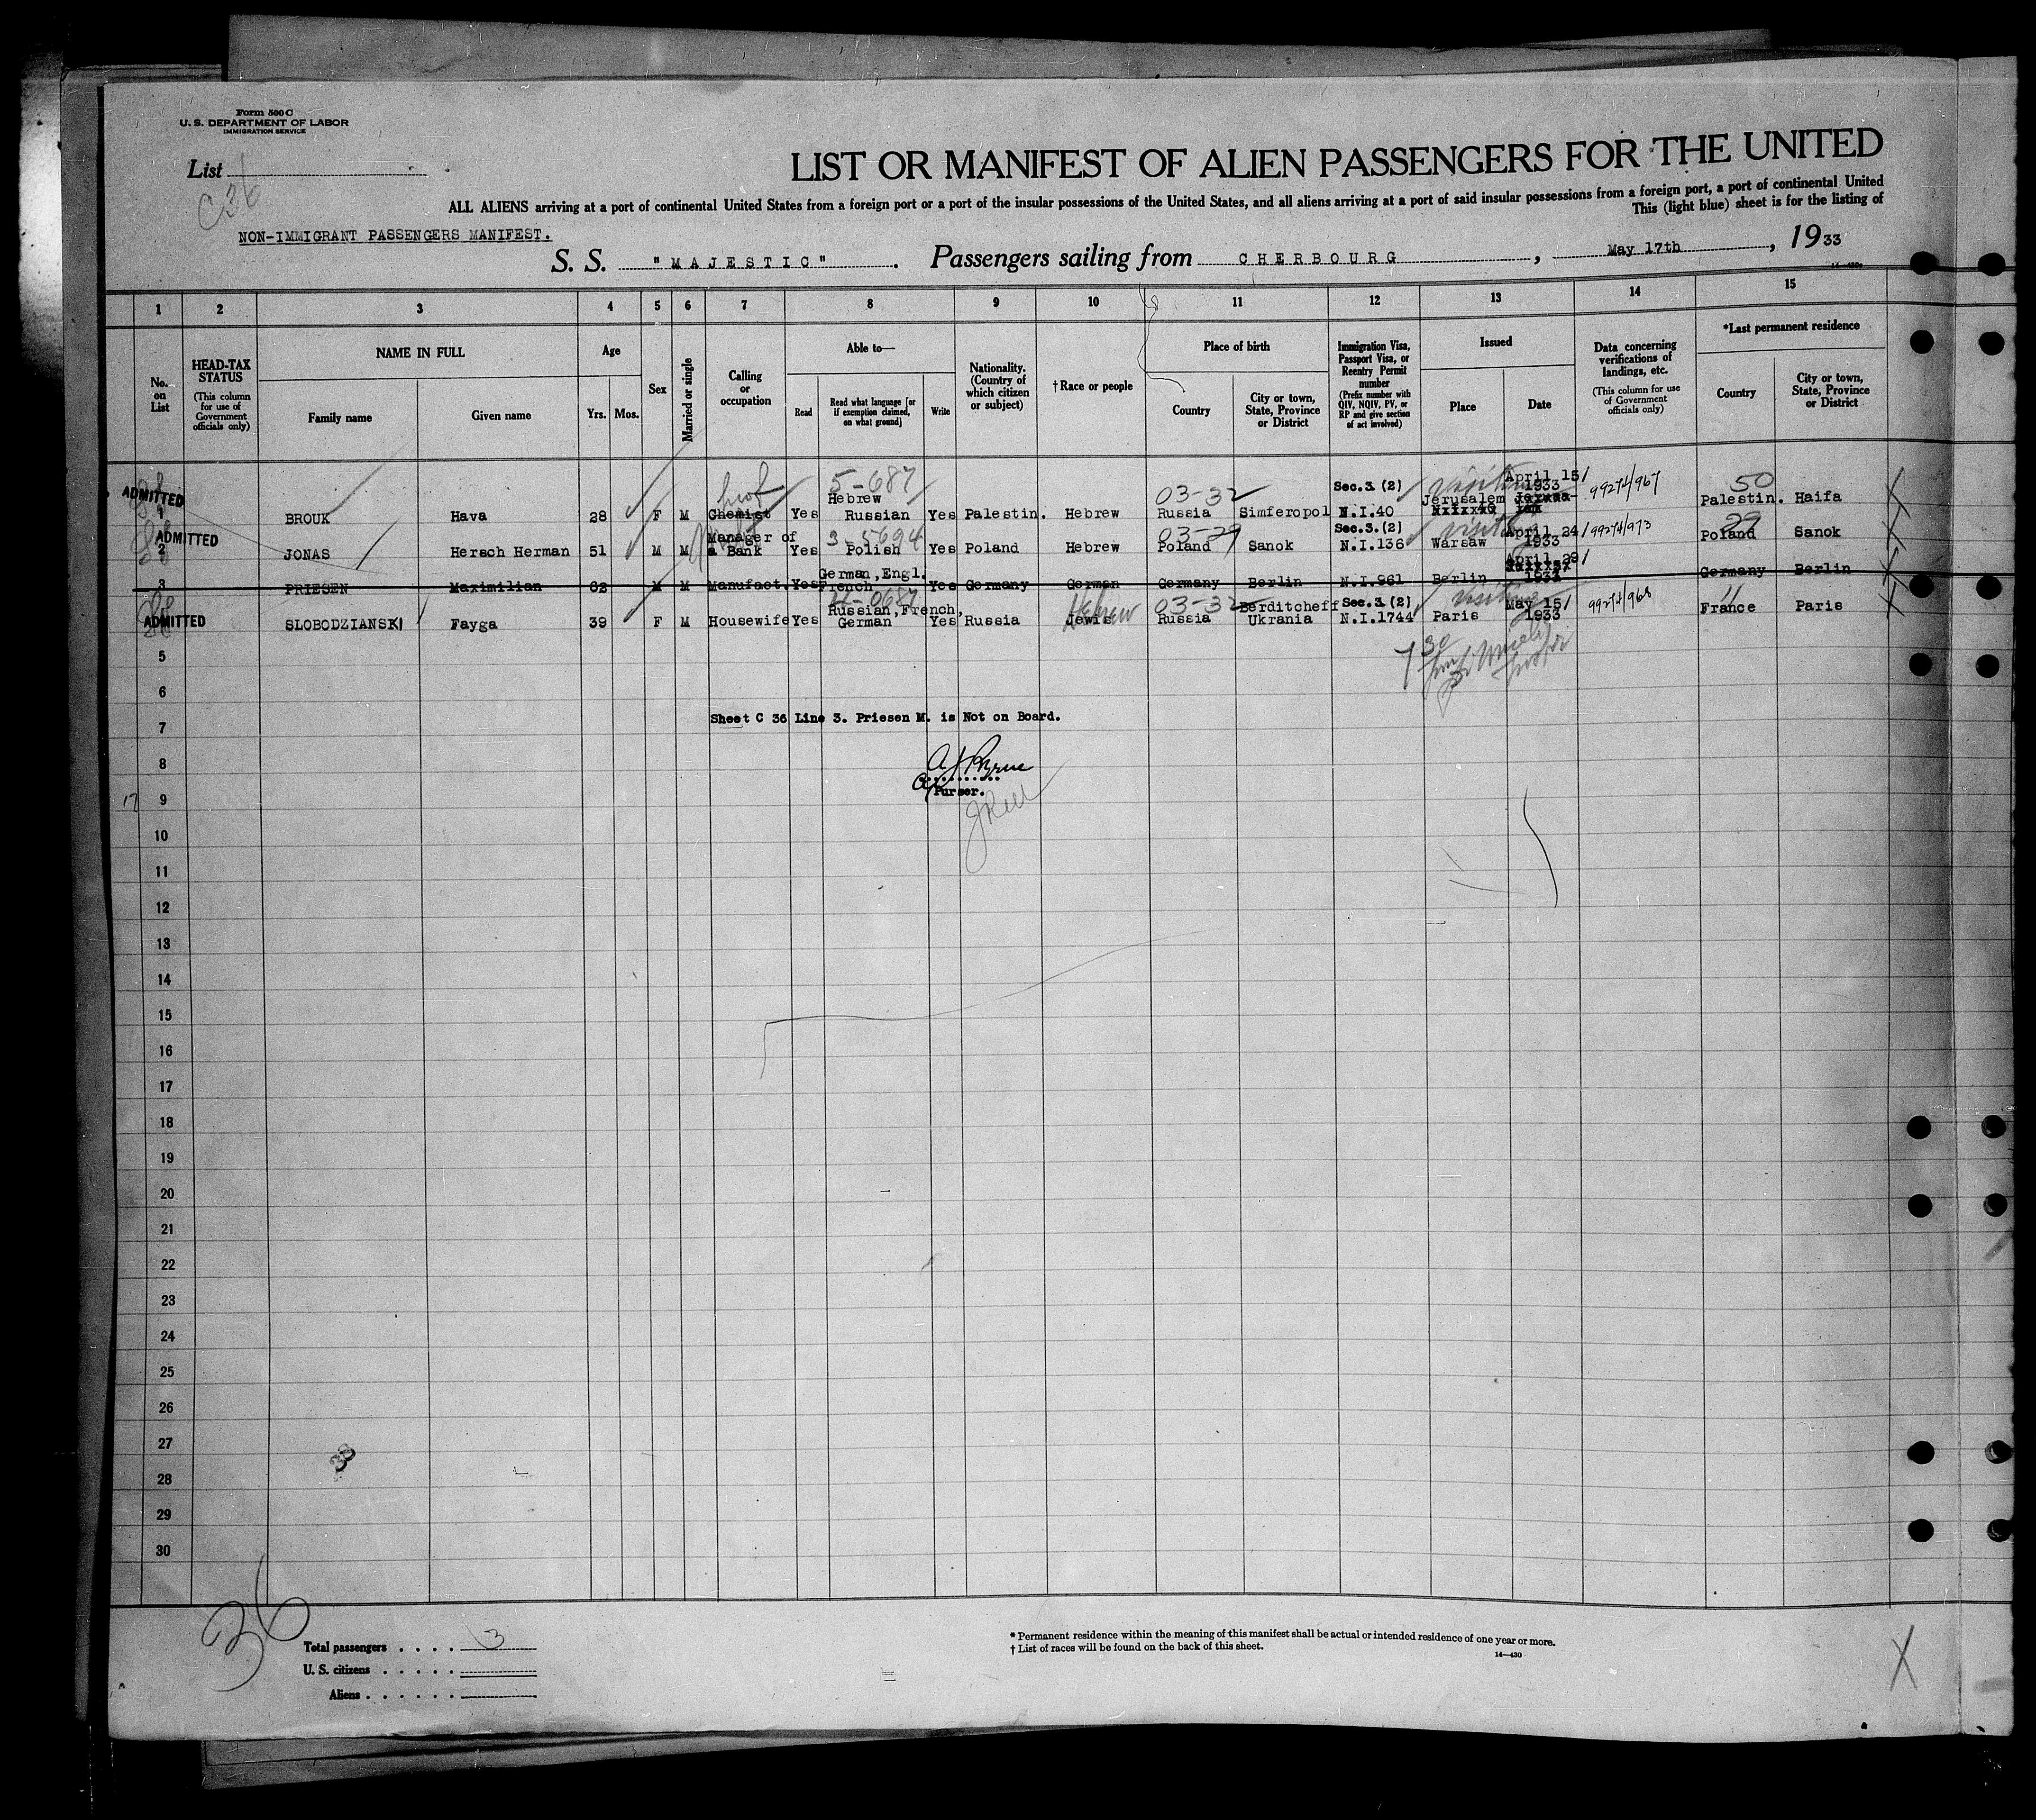 Form 500 C
U. S. DEPARTMENT OF LABOR
IMMIGRATION SERVICE
List
C36
LIST OR MANIFEST OF ALIEN PASSENGERS FOR THE UNITED
ALL ALIENS arriving at a port of continental United States from a foreign port or a port of the insular possessions of the United States, and all aliens arriving at a port of said insular possessions from a foreign port, a port of continental United
This (light blue) sheet is for the listing of
NON-IMMIGRANT PASSENGERS MANIFEST.
S. S. "MAJESTIC". Passengers sailing from CHERBOURG, May 17th, 1933
1 2 3 4 5 6 7 8 9 10 11 12 13 14 15
No. on List
HEAD-TAX STATUS (This column for use of Government officials only)
NAME IN FULL Family name Given name
Age Yrs. Mos.
Sex
Married or single
Calling or occupation
Able to— Read Read what language [or if exemption claimed, on what ground] Write
Nationality. (Country of which citizen or subject)
†Race or people
Place of birth Country City or town, State, Province or District
Immigration Visa, Passport Visa, or Reentry Permit number (Prefix number with QIV, NQIV, PV, or RP and give section of act involved)
Issued Place Date
Data concerning verifications of landings, etc. (This column for use of Government officials only)
*Last permanent residence Country City or town, State, Province or District
ADMITTED 1 BROUK Hava 28 F M Chemist Yes 5-687 Hebrew Russian Yes Palestin. Hebrew 03-32 Russia Simferopol Sec.3 (2) N.I.40 Jerusalem April 15/ 1933 99274/967 50 Palestin. Haifa
ADMITTED 2 JONAS Hersch Herman 51 M M Manager of a Bank Yes 3-5694 Polish Yes Poland Hebrew 03-29 Poland Sanok Sec.3.(2) N.I.136 visit Warsaw April 24/ 1933 99274/973 29 Poland Sanok
3 PRIESEN Maximilian 62 M M Manufact. Yes German, Engl. French Yes Germany German Germany Berlin N.I.961 Berlin April 28/ 1933 Germany Berlin
ADMITTED SLOBODZIANSKI Fayga 39 F M Housewife Yes Russian, French, German Yes Russia Hebrew Jewis 03-32 Russia Berditcheff Ukrania Sec.3 (2) N.I.1744 visiting Paris May 15/ 1933 99274/968 11 France Paris
5
6
7 Sheet C 36 Line 3. Priesen M. is Not on Board.
8
A J Byrne
17 9
Purser.
10
11
12
13
14
15
16
17
18
19
20
21
22
23
24
25
26
27
38
28
29
30
36
Total passengers . . . . 3
U. S. citizens . . . . .
Aliens . . . . . .
* Permanent residence within the meaning of this manifest shall be actual or intended residence of one year or more.
† List of races will be found on the back of this sheet.
14—430
X